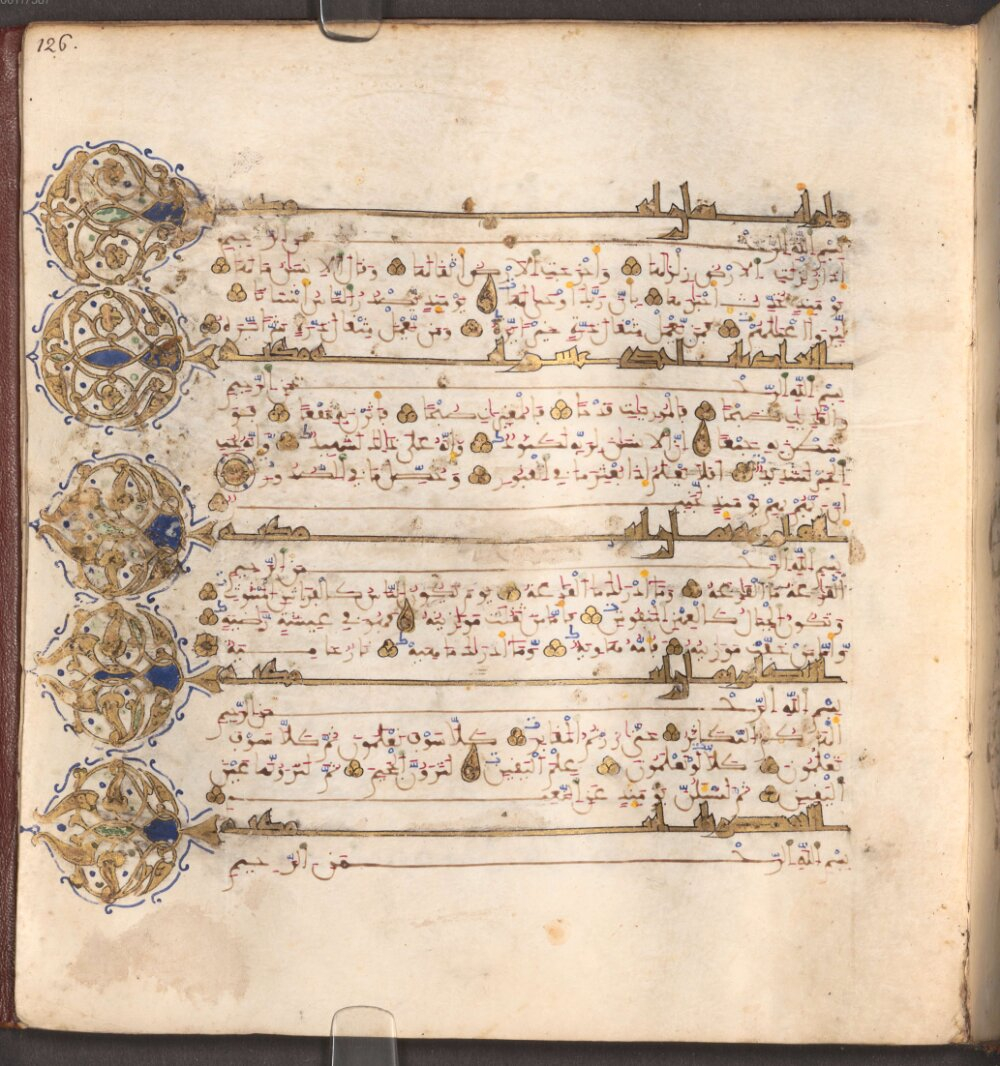 126.
مكية
بسم الله الرحمن الرحيم
إذا زلزلت الارض زلزالها وأخرجت الارض أثقالها وقال الانسان ما لها
يومئذ تحدث أخبارها بأن ربك أوحى لها يومئذ يصدر الناس أشتاتا
ليروا أعمالهم فمن يعمل مثقال ذرة خيرا يره ومن يعمل مثقال ذرة شرا يره
والعاديات احدى عشرة اية مكية
بسم الله الرحمن الرحيم
والعاديات ضبحا فالموريات قدحا فالمغيرات صبحا فأثرن به نقعا فو
سطن به جمعا إن الانسان لربه لكنود وإنه على ذلك لشهيد وإنه لحب
الخير لشديد أفلا يعلم إذا بعثر ما في القبور وحصل ما في الصدور
إن ربهم بهم يومئذ لخبير
القارعة مكية
بسم الله الرحمن الرحيم
القارعة ما القارعة وما أدراك ما القارعة يوم يكون الناس كالفراش المبثوث
وتكون الجبال كالعهن المنفوش فأما من ثقلت موازينه فهو في عيشة راضية
وأما من خفت موازينه فأمه هاوية وما أدراك ما هيه نار حامية
مكية
بسم الله الرحمن الرحيم
ألهاكم التكاثر حتى زرتم المقابر كلا سوف تعلمون ثم كلا سوف
تعلمون كلا لو تعلمون علم اليقين لترون الجحيم ثم لترونها عين
اليقين ثم لتسئلن يومئذ عن النعيم
والعصر مكية
بسم الله الرحمن الرحيم